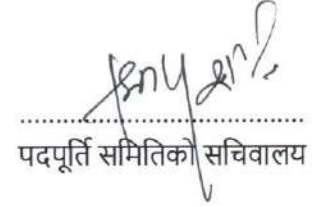 पदपूर्ति समितिको सचिवालय